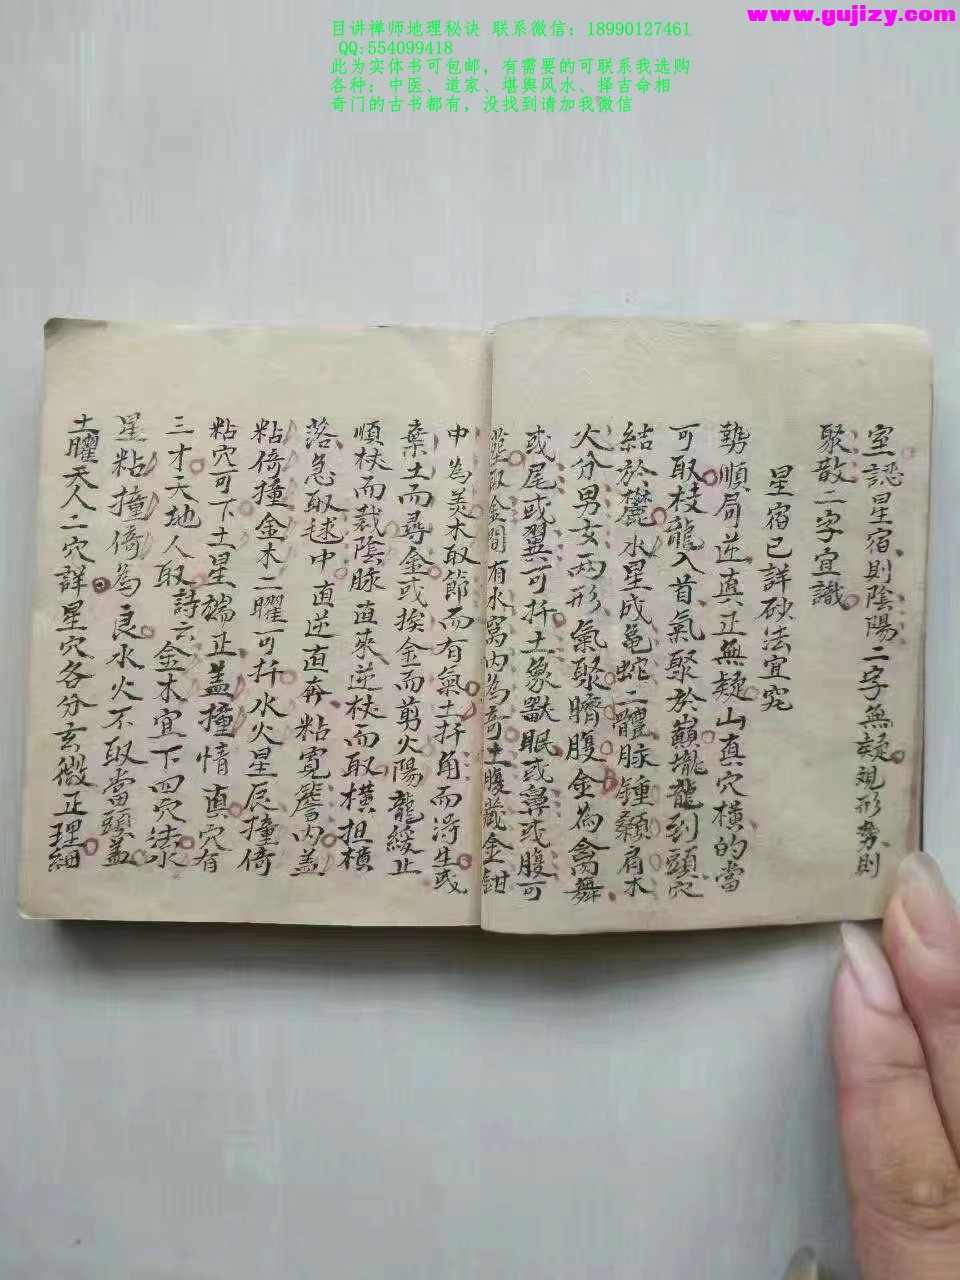 www.gujizy.com
目讲禅师地理秘诀 联系微信：18990127461
QQ:554099418
此为实体书可包邮，有需要的可联系我选购
各种：中医、道家、堪舆风水、择吉命相
奇门的古书都有，没找到请加我微信
室認星宿則陰陽二字無疑觀形势則
聚散二字宜識
星宿已詳砂法宜究
勢順局逆真正無疑山真穴横的當
可取枝龍入首氣聚於巔壠龍到頭穴
結於麓水星成龜蛇二體脉鍾顙肩木
火分男女两形氣聚臍腹金為禽舞
或尾或翼可扦土象獸眠或鼻或腹可
取金間有水窩内為奇土腹藏金鉗
中為美木取節而有氣土扦角而得生或
棄土而尋金或挨金而剪火陽龍緩止
順杖而裁陰脉直來逆杖而取横担横
落急取毬中直逆直奔粘寬簷内盖
粘倚撞金木二曜可扦水火星辰撞倚
粘穴可下土星端正盖撞情真穴有
三才天地人取詩云金木宜下四穴法水
星粘撞倚為良水火不取當頭盖
土曜天人二穴詳星穴各分玄微正理細